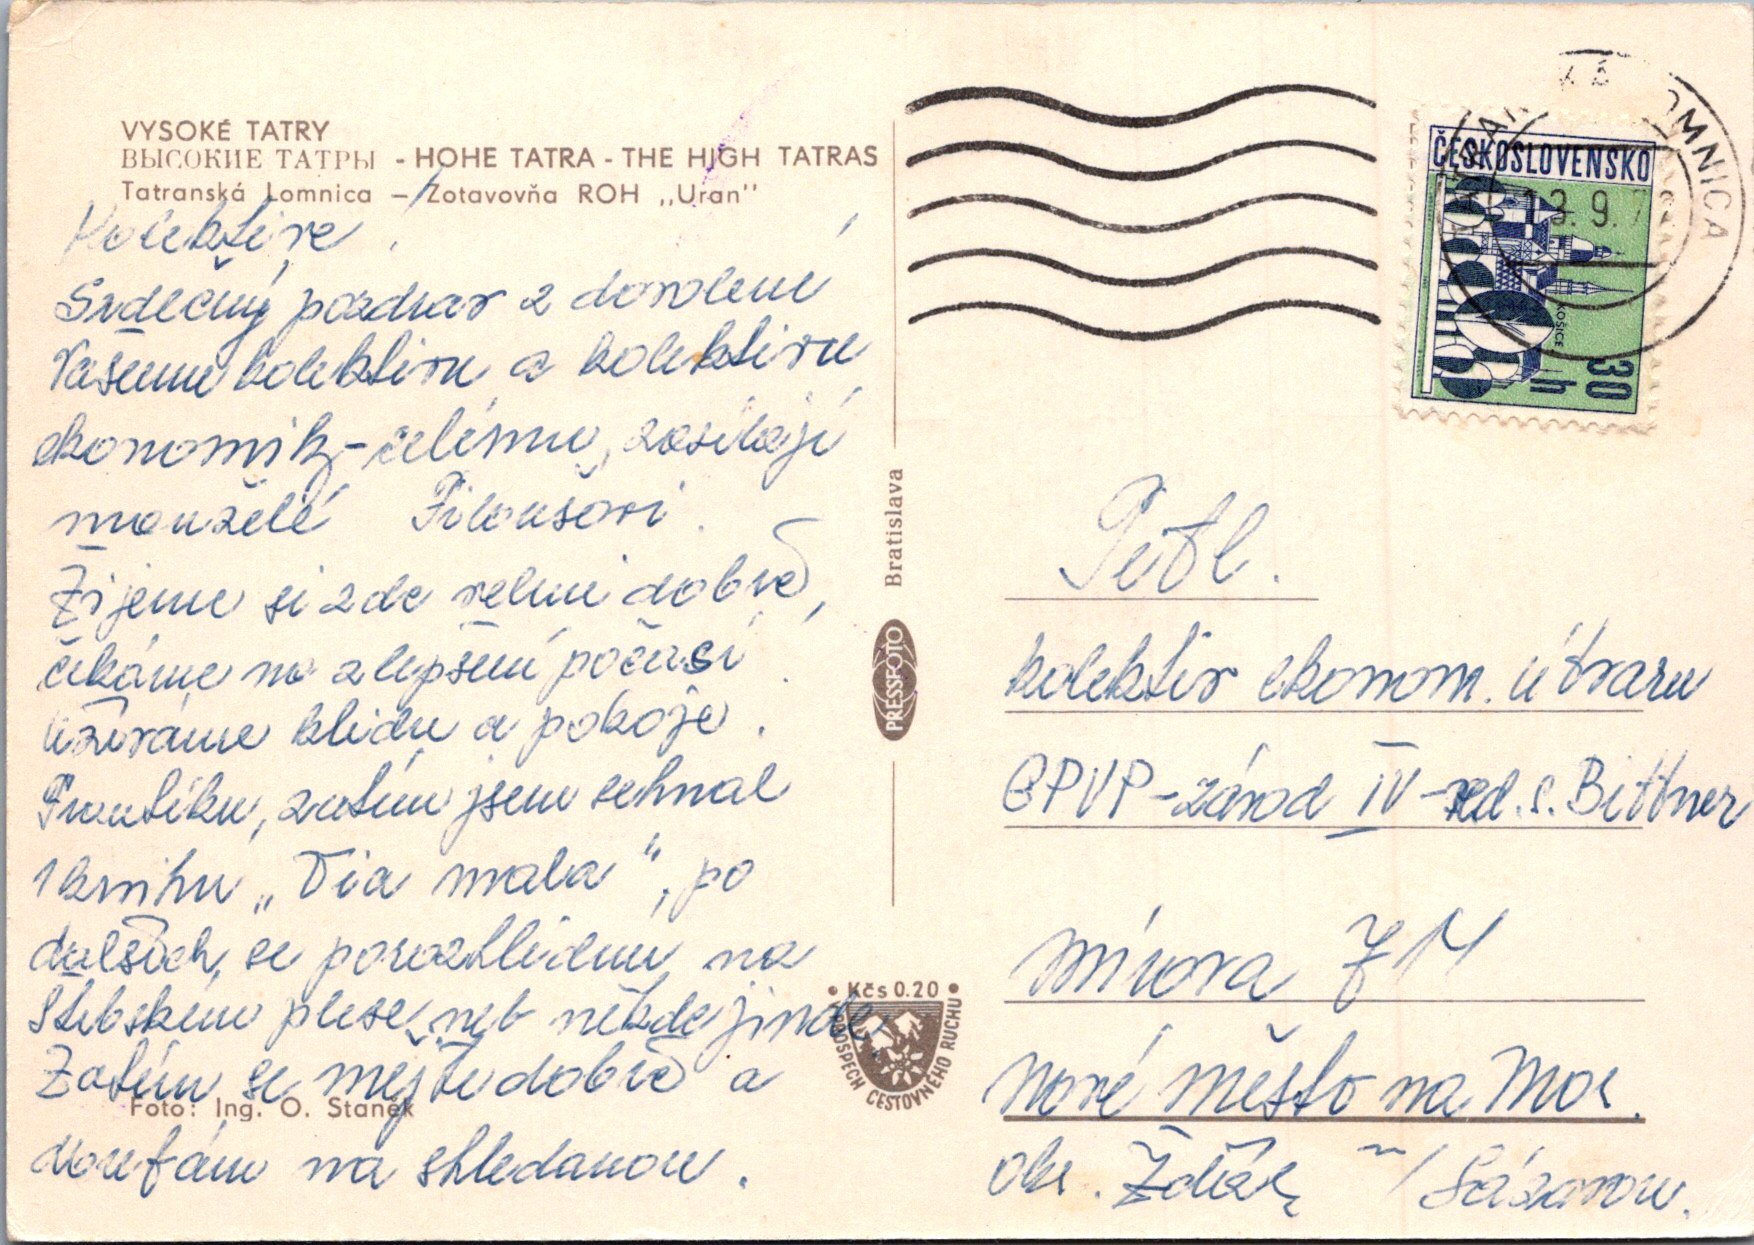 VYSOKÉ TATRY
ВЫСОКИЕ ТАТРЫ - HOHE TATRA - THE HIGH TATRAS
Tatranská Lomnica – Zotavovňa ROH „Uran"
Kolektive !
Srdečný pozdrav z dovolené
Vašemu kolektivu a kolektivu
ekonomik-celému, zasílají
manželé Filoušovi.
Žijeme si zde velmi dobře,
čekáme na zlepšení počasí.
Užíváme klidu a pokoje.
Frantíku, zatím jsem sehnal
1 knihu „Via mala", po
dalších se porozhlídnu na
Štrbském plese neb někde jinde.
Zatím se mějte dobře a
doufám na shledanou.
Foto: Ing. O. Staněk
Bratislava
PRESSFOTO
Kčs 0.20
VO PROSPECH CESTOVNÉHO RUCHU
ČESKOSLOVENSKO
KOŠICE
30 h
LOMNICA
13. 9. 7
Titl.
kolektiv ekonom. útvaru
GPVP-závod IV-red. s. Bittner
Mírova
Nové Město na Mor.
okr. Žďár n/Sázavou.